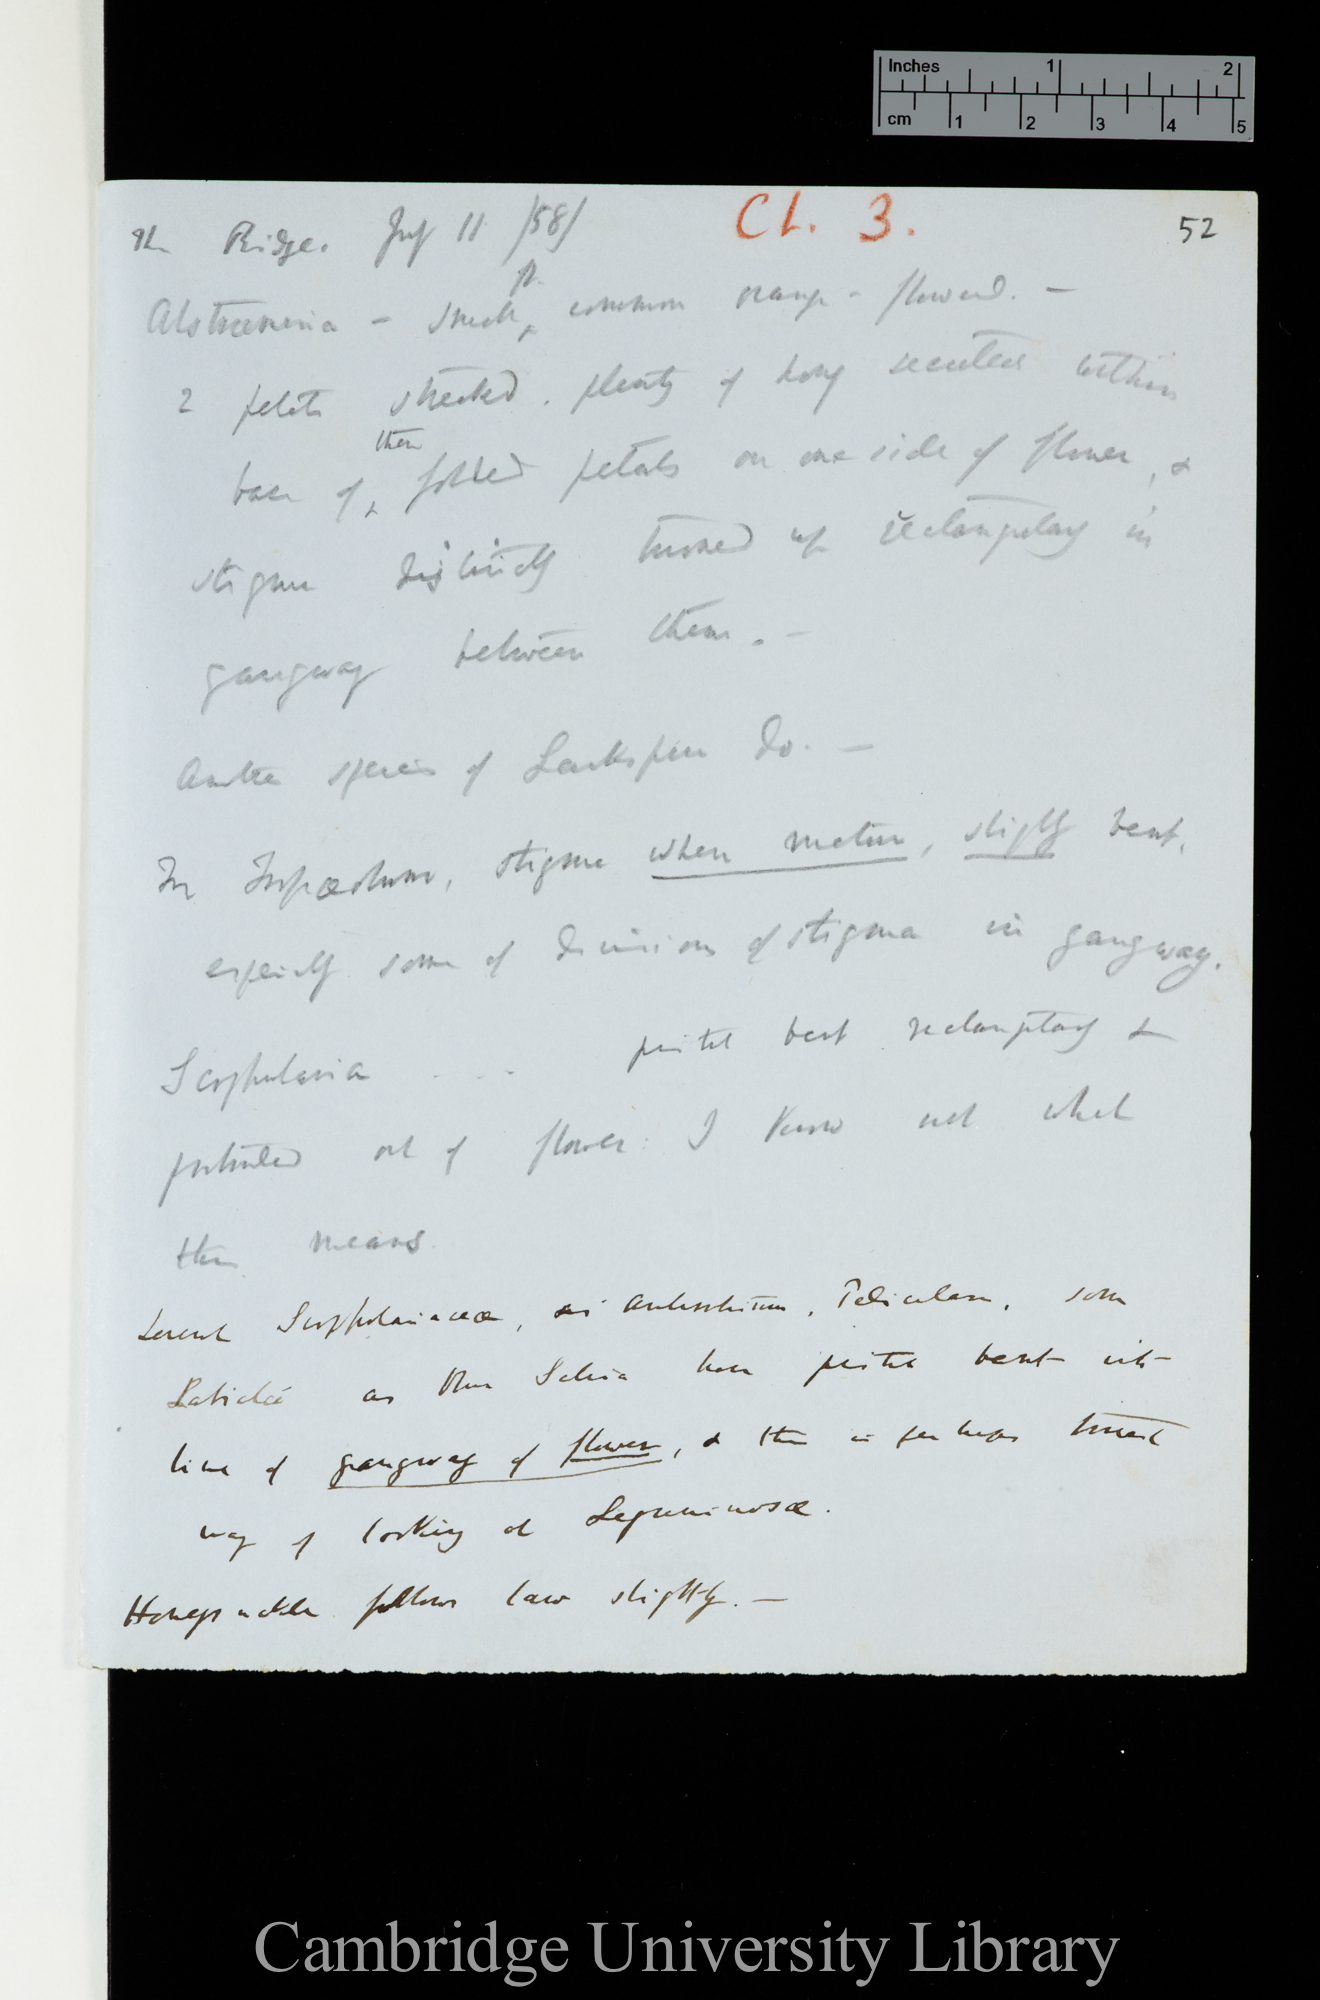 Inches 1 2
cm 1 2 3 4 5
Ch. 3.
52
The Ridge. July 11 /58/
Alstroemeria – small common orange-flowered. –
2 petals streaked. plenty of honey secreted within
base of these folded petals on one side of flower, &
stigma distinctly turned up rectangularly in
gangway between them. –
Another species of Larkspur do. –
In Tropæolum, stigma when mature, slightly bent,
especially some of divisions of stigma in gangway.
Scrophularia . . . pistil bent rectangularly &
protruded out of flower: I know not what
this means.
Several Scrophulariaceæ, as Antirrhinum, Pedicularis, some
Labiatæ as Blue Salvia have pistil bent into
line of gangway of flower, & this is perhaps truest
way of looking at Leguminosæ.
Honeysuckle follows law slightly. –
Cambridge University Library